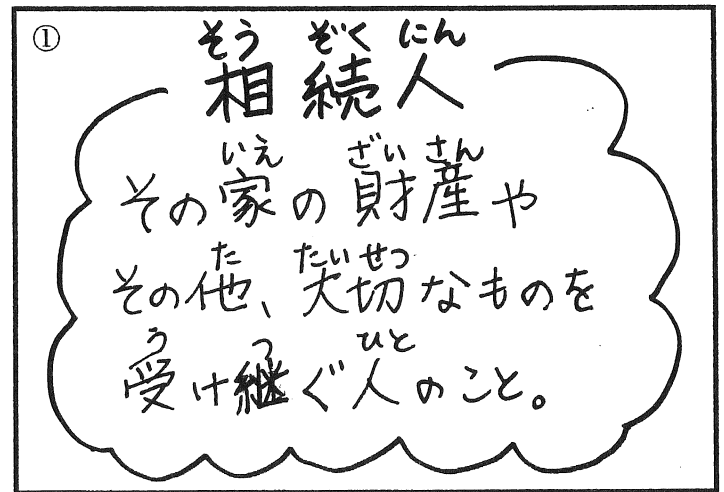 ①
そう ぞく にん
相続人
いえ ざい さん
その家の財産や
た たい せつ
その他、大切なものを
う つ ひと
受け継ぐ人のこと。